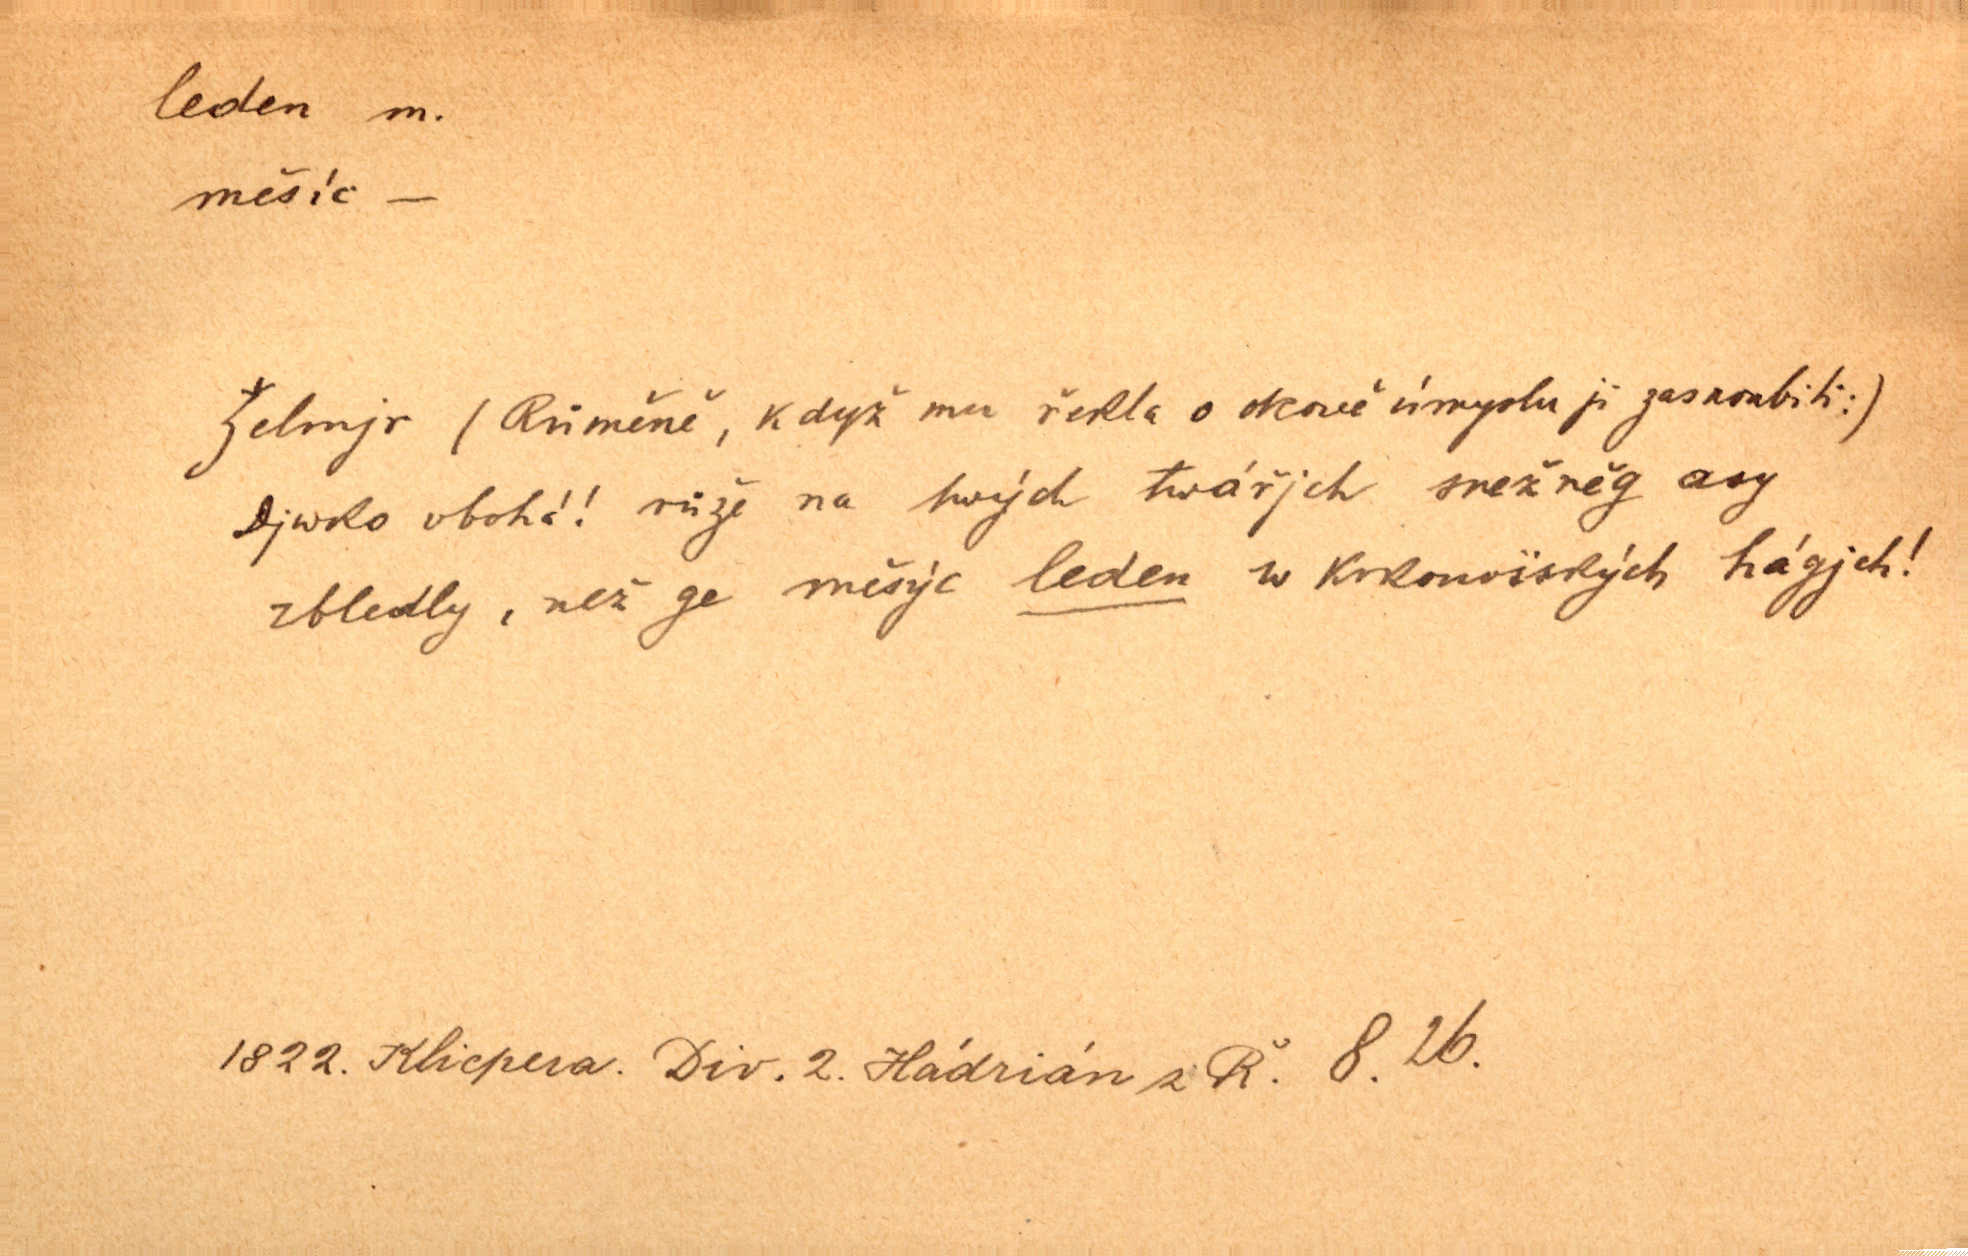 leden m.
měsíc —
Želmjr (Růměně, když mu řekla o otcově úmyslu ji zasnoubiti:)
Djwko ubohá! růže na twých twářjch sněžněg asy
zbledly, než ge měsýc leden w krkonošských hágjch!
1822. Klicpera. Div. 2. Hádrián z Ř. 8. 26.